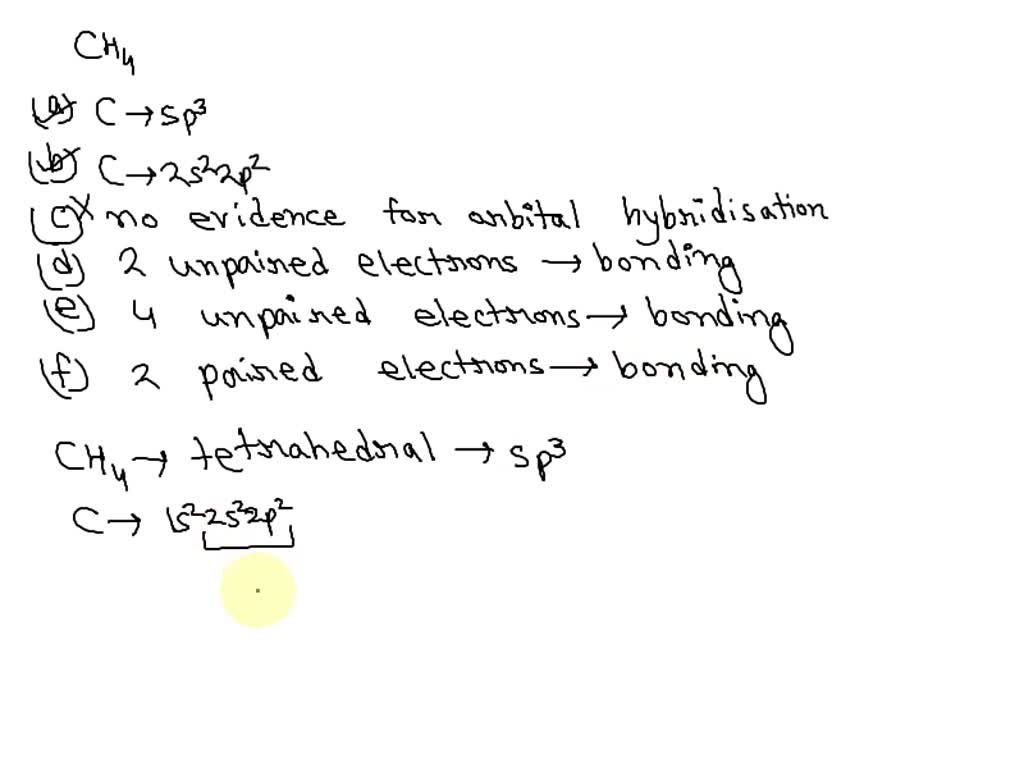 CH₄
(a) C → sp³
(b) C → 2s²2p²
(c) x no evidence for orbital hybridisation
(d) 2 unpaired electrons → bonding
(e) 4 unpaired electrons → bonding
(f) 2 paired electrons → bonding
CH₄ → tetrahedral → sp³
C → 1s²2s²2p²